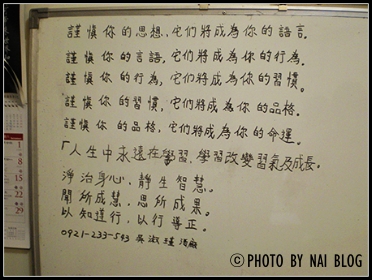 謹慎你的思想、它們將成為你的語言.
謹慎你的言語,它們將成為你的行為.
謹慎你的行為,它們將成為你的習慣.
謹慎你的習慣,它們將成為你的品格.
謹慎你的品格,它們將成為你的命運.
「人生中永遠在學習,學習改變習氣及成長.
淨治身心、靜生智慧.
聞所成慧、思所成果。
以知道行,以行導正.
0921-233-543 吳淑
1
8
15
22
29
©PHOTO BY NAI BLOG